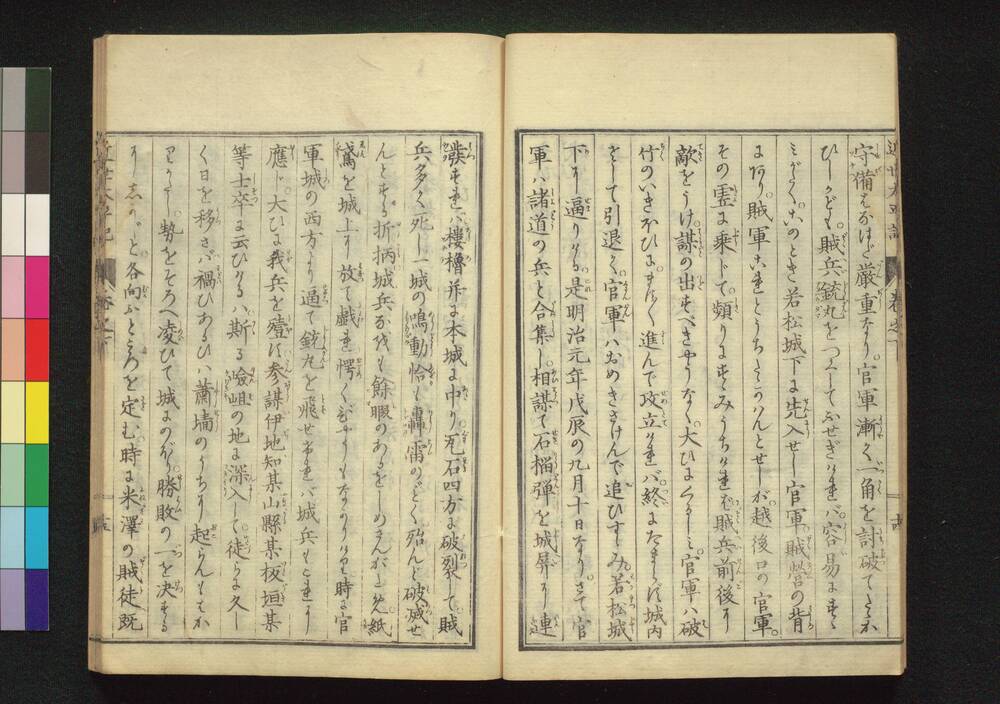 守備もなほ厳重なり。官軍漸く一角を討破てたゝか
ひしかども。賊兵銃丸をつくしてふせぎければ。容易にすゝ
みがたく。このとき若松城下に先入せし官軍。賊営の背
にあり。賊軍これとうちたゝかはんとせしが。越後口の官軍。
その霊に乗じて。頻りにすゝみうちければ。賊兵前後に
敵をうけ。謀の出すべきやうなく。大ひにくるしみ。官軍ハ破
竹のいきほひにて。はげしく進んで攻立ければ。終にたまらず城内
をさして引退く。官軍ハおめきさけんで追ひすゝみ。若松城
下に逼りける。是明治元年戊辰の九月十日なり。さて官
軍ハ諸道の兵と合集し。相謀て石榴弾を城屏に連
発すれば。楼櫓并に本城に中り。瓦石四方に破裂して。賊
兵多く死し一城の鳴動恰も轟雷のごとく殆んど破滅せ
んとする折柄城兵なほも餘暇のあるをしめさんが為。紙
鳶を城上に放て戯れ愕くけしきもなかりける時に官
軍城の西方より逼て銃丸を飛せければ城兵もこれに
應じ。大ひに我兵を殪す参謀伊地知某山縣某板垣某
等士卒に云ひけるハ。斯る嶮岨の地に深入して。徒らに久し
く日を移さば禍ひあるひハ蕭墻のうちに起らんもはか
りがたし。勢をそろへ凌ひて城にのぼり。勝敗の一を決する
にしかじ。と各向ふところを定む。時に米澤の賊徒既